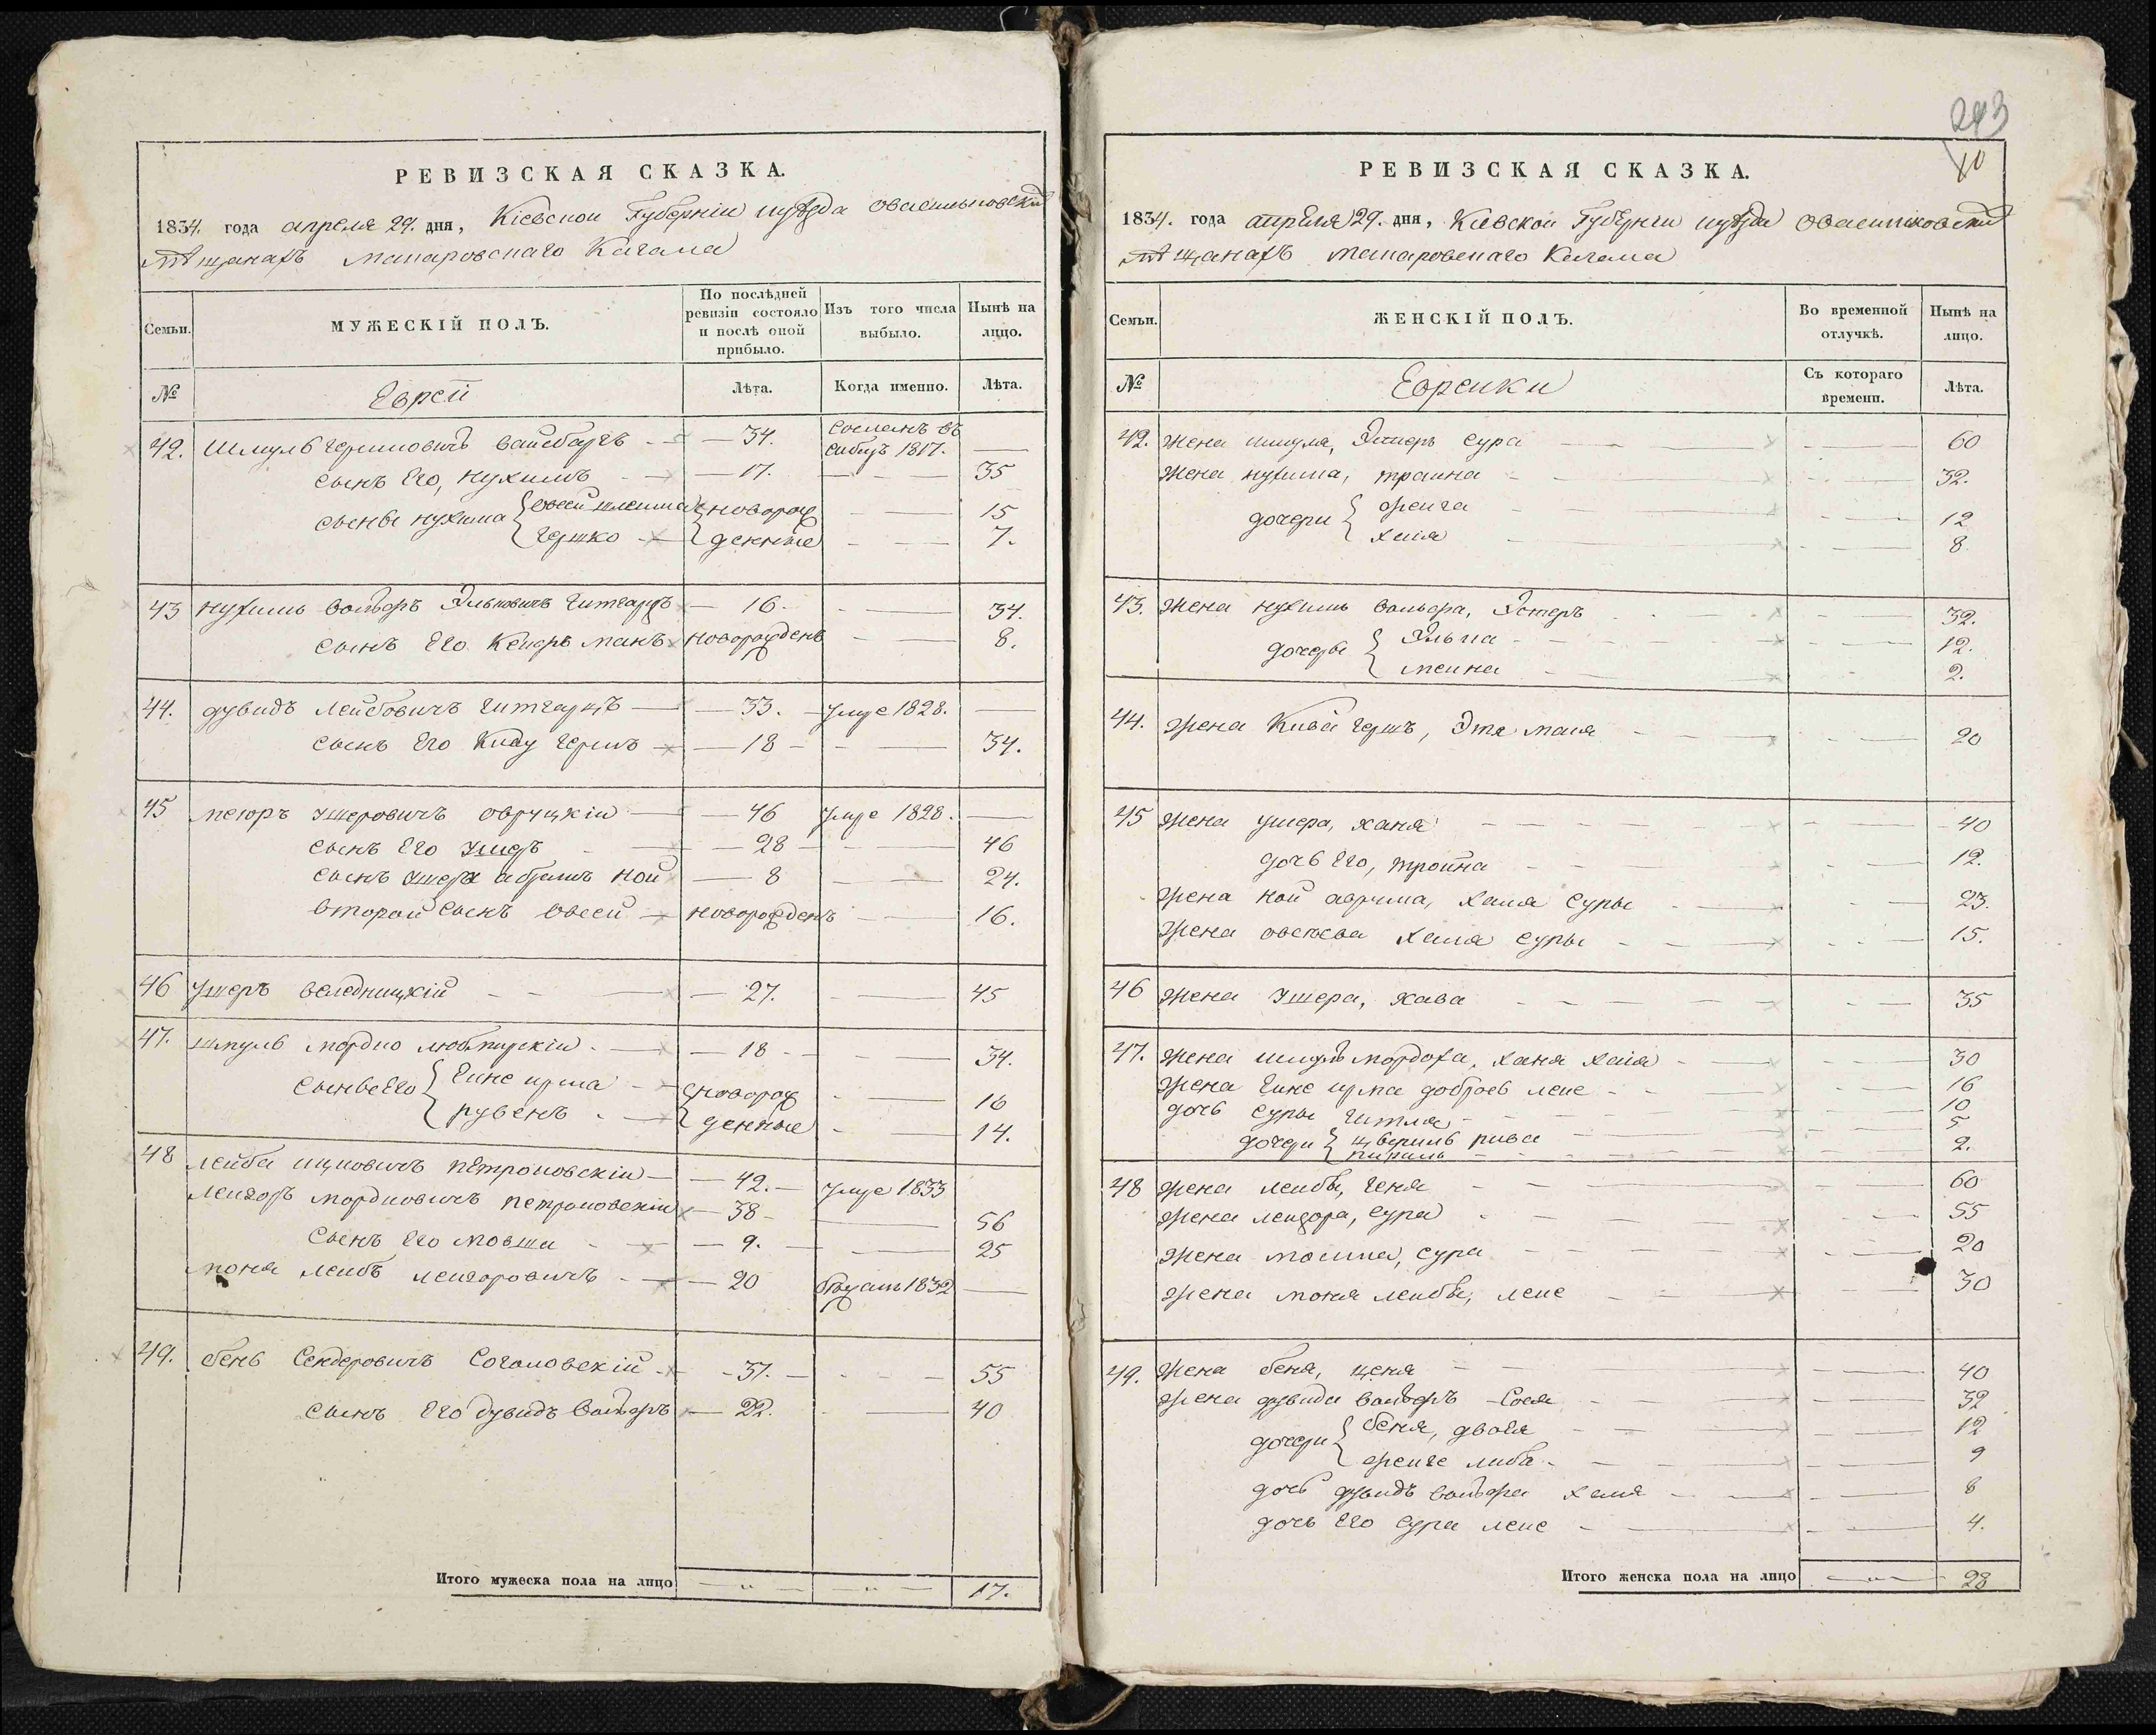 РЕВИЗСКАЯ СКАЗКА.
1834. года апреля 29. дня, Кіевской Губерніи
мѣщанахъ Макаровскаго Кагала
Семьи.
МУЖЕСКІЙ ПОЛЪ.
По послѣдней ревизіи состояло и послѣ оной прибыло.
Изъ того числа выбыло.
Нынѣ на лицо.
№
Еврей
Лѣта.
Когда именно.
Лѣта.
42. Шмуль Гершковичъ Вайсбаргъ 34. Сосланъ въ сибирь 1817.
сынъ Его, Нухимъ 17. 35
сыны Нухима { Овсей шлема { новорож 15
Гершко { денные 7.
43 Нухимъ Вольфъ Эльковичъ 16. 34.
сынъ Его новорожденъ 8.
44. дувидъ лейбовичъ 33. умре 1828.
сынъ Его Кива Гершъ 18 34.
45 Ушеровичъ овруцкій 46 умре 1828.
сынъ Его Ушеръ 28 46
сынъ Ушера абрамъ Ной 8 24.
второй сынъ Овсей новорожденъ 16.
46 Ушеръ веледницкій 27. 45
47. шмуль мордко 18 34.
сыны Его { { новорож 16
рувенъ { денные 14.
48 лейба ицковичъ петроковскій 42. умре 1833
лейзоръ мордковичъ петроковскій 38 56
сынъ Его мовша 9. 25
моня лейбъ лейзоровичъ 20 1832
49. бень Сендеровичъ Соголовскій 37. 55
сынъ Его дувидъ Вольфъ 22. 40
Итого мужеска пола на лицо 17.
243
10
РЕВИЗСКАЯ СКАЗКА.
1834. года апреля 29. дня, Кіевской Губерніи
мѣщанахъ Макаровскаго Кагала
Семьи.
ЖЕНСКІЙ ПОЛЪ.
Во временной отлучкѣ.
Нынѣ на лицо.
№
Еврейки
Съ котораго времени.
Лѣта.
42. Жена шмуля, Эстеръ Сура 60
Жена нухима, траина 32.
дочери { фейга 12
хаія 8
43. Жена нухимъ вольфа, Эстеръ 32.
дочери { Элька 12.
2.
44. Жена Кива Гершъ, Эта 20
45 Жена ушера, ханя 40
дочь Его, тройна 12.
Жена Ной аврума, хаия Суры 23.
Жена хаия суры 15.
46 Жена Ушера, хава 35
47. Жена шмуль мордоха, ханя хаія 30
Жена лейе 16
дочь суры гитля 10
дочери { рива 5
2.
48 Жена лейбы, геня 60
Жена лейзора, сура 55
Жена мошка, сура 20
Жена моня лейбы, лейе 30
49. Жена беня, ценя 40
Жена дувида вольфъ Сося 32
дочери { беня, двойя 12
фейге либа 9
дочь дувидъ вольфа хаия 8
дочь Его сура лейе 4.
Итого женска пола на лицо 28